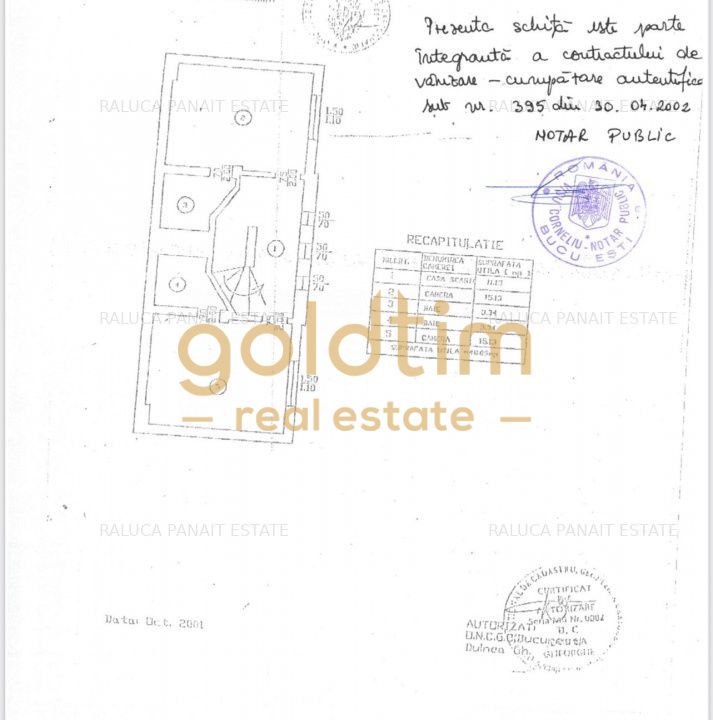 Prezenta schiță este parte
integrantă a contractului de
vânzare - cumpărare autentifica
sub nr. 395 din 30.04.2002
NOTAR PUBLIC
RALUCA PANAIT ESTATE
RALUCA PANAIT ESTATE
ROMÂNIA
CORNELIU - NOTAR PUBLIC
BUCUREȘTI
2
1.50
1.10
3
1
50
70
50
70
50
70
4
5
1.50
1.10
RECAPITULATIE
NR.CRT. DENUMIREA CAMEREI SUPRAFATA UTILA
1 CASA SCARII 11.13
2 CAMERA 15.13
3 BAIE 3.34
4 BAIE 3.34
5 CAMERA 15.13
SUPRAFATA UTILA
RALUCA PANAIT ESTATE
RALUCA PANAIT ESTATE
goldtim
real estate
RALUCA PANAIT ESTATE
RALUCA PANAIT ESTATE
Data: Oct. 2001
CERTIFICAT
DE
AUTORIZARE
B, C
GHEORGHE
AUTORIZAT
Dulnea Gh.